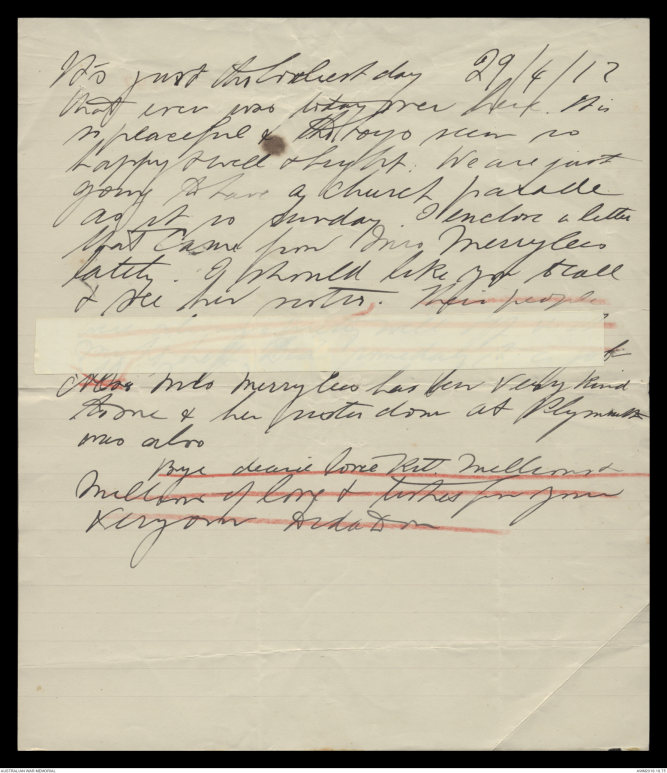 It's just the loveliest day 29/4/17
that ever was today over here. It is
so peaceful & the boys seem so
happy & well & bright. We are just
going to have a church parade
as it is Sunday. I enclose a letter
that came from Mrs Merrylees
lately. I should like you to call
& see her sister. Their people
Mrs Merrylees has been very kind
to me & her sister down at Plymouth
was also
Bye dearie love Kit. Millions &
Millions of love & kisses for your
very own
AUSTRALIAN WAR MEMORIAL